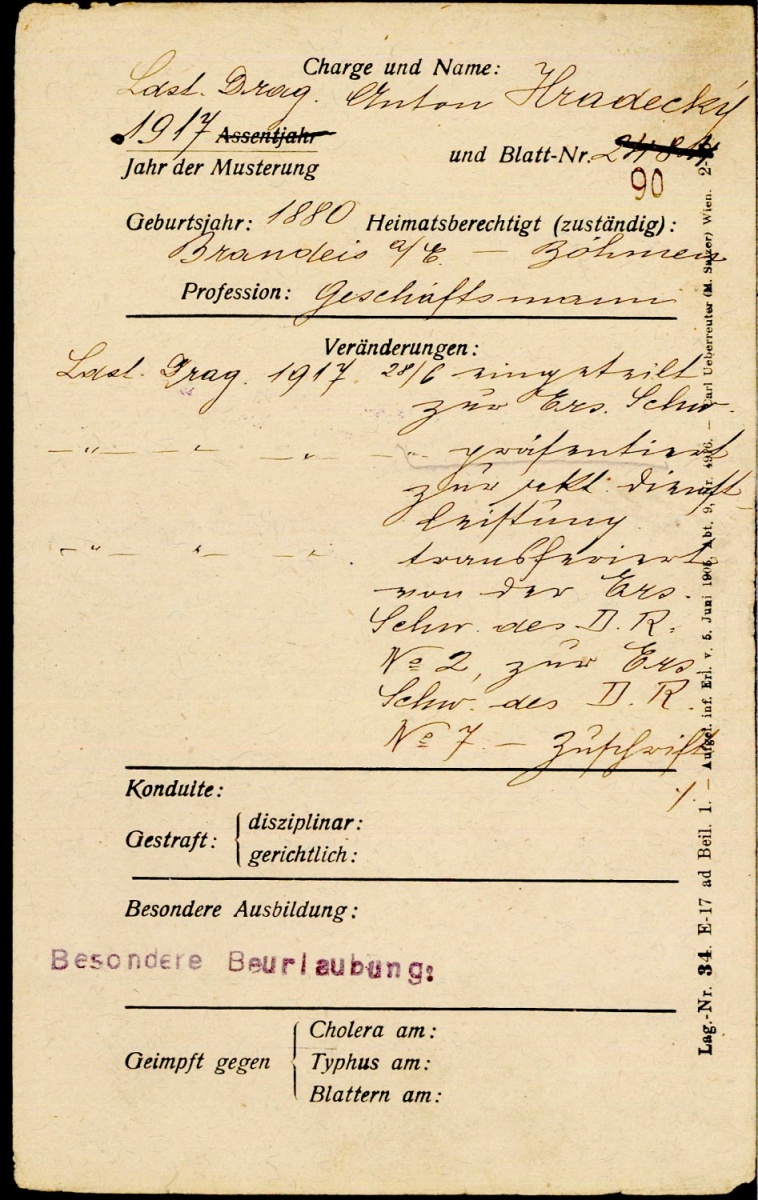 Charge und Name:
Ldst. Drag. Anton Hradecký
1917 Assentjahr
und Blatt-Nr.
Jahr der Musterung
90
Geburtsjahr: 1880 Heimatsberechtigt (zuständig):
Brandeis a/E. — Böhmen
Profession: Geschäftsmann
Veränderungen:
Ldst. Drag. 1917 28/6 eingeteilt
zur Ers. Schw.
— " — " " " präsentiert
zur akt. Dienst-
leistung.
— " — " — " . transferiert
von der Ers.
Schw. des D. R.
No 2, zur Ers.
Schw. des D. R.
No 7 — Zuschrift
./.
Konduite:
Gestraft: { disziplinar:
gerichtlich:
Besondere Ausbildung:
Besondere Beurlaubung:
Geimpft gegen { Cholera am:
Typhus am:
Blattern am:
Lag.-Nr. 34. E-17 ad Beil. 1. — Aufgel. inf. Erl. v. 5. Juni 1905, Abt. 9, Nr. — Carl Ueberreuter (M. Salzer) Wien.